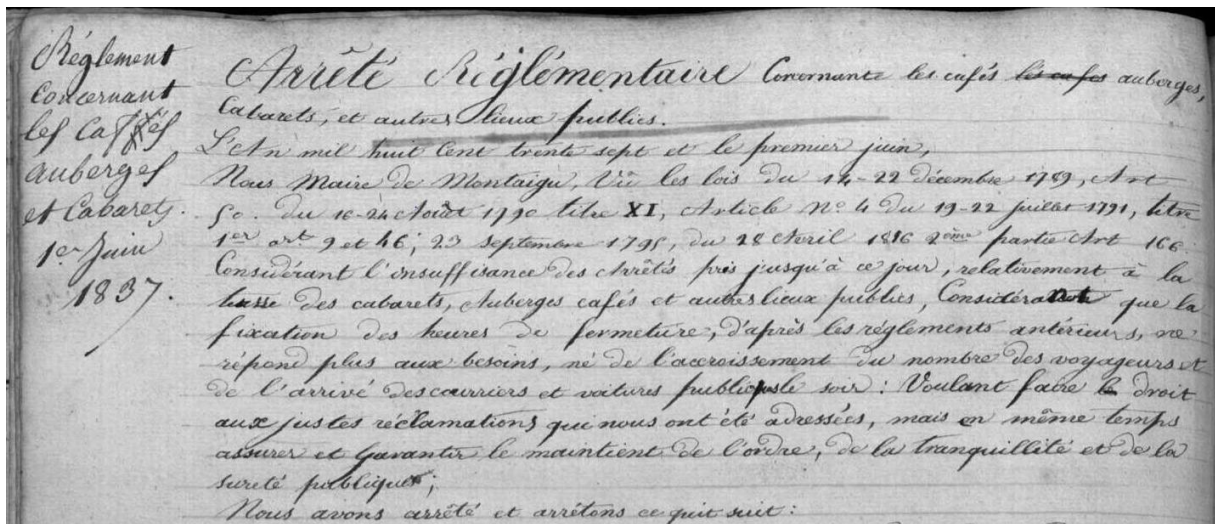 Réglement
concernant
les Caffés
auberges
et Cabarets.
1er Juin
1837.
Arrêté Réglémentaire Concernante les cafés les cafes auberges,
Cabarets, et autres lieux publics.
L'An mil huit Cent trente sept et le premier juin,
Nous Maire de Montaigu, Vû les lois du 14-22 décembre 1789, Art
50. du 16-24 Août 1790 titre XI, Article No 4 du 19-22 juillet 1791, titre
1er art 9 et 46; 23 septembre 1795, du 28 Avril 1816 2ème partie Art 166
Considérant l'insuffisance des Arrêtés pris jusqu'à ce jour, relativement à la
des cabarets, Auberges cafés et autres lieux publics, Considérant que la
fixation des heures de fermeture, d'après les réglements antérieurs, ne
répond plus aux besoins, né de l'accroissement du nombre des voyageurs et
de l'arrivé des courriers et voitures publiques le soir : Voulant faire le droit
aux justes réclamations qui nous ont été adressées, mais en même temps
assurer et garantir le maintient de l'ordre, de la tranquillité et de la
sureté publique;
Nous avons arrêté et arrêtons ce quit suit :